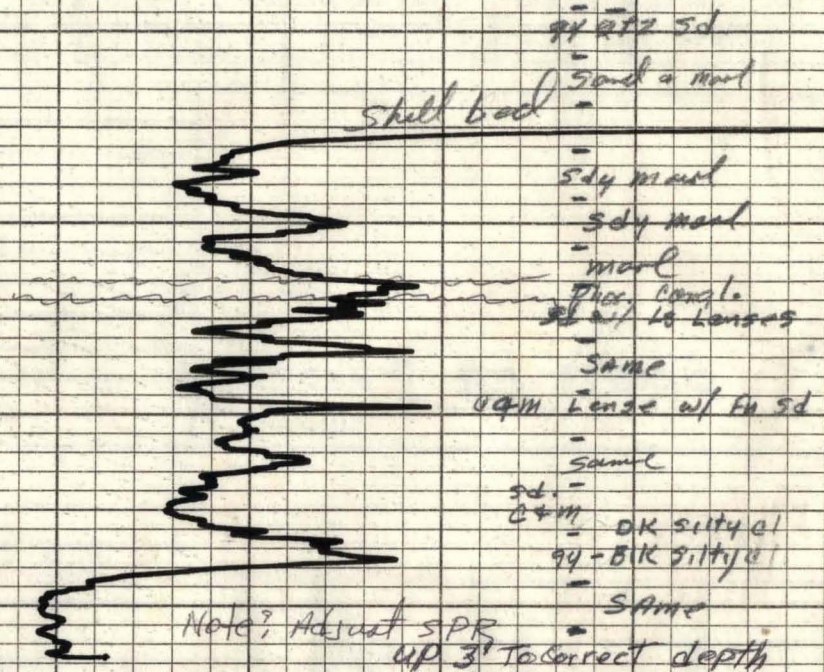 gy qtz sd
Sand & marl
Shell bed
Sdy marl
Sdy marl
marl
Phos. Congl.
sd w/ Ls Lenses
SAme
C&m Lense w/ Fn Sd
Same
sd.
C&m
DK silty cl
gy-Blk silty cl
SAme
Note: Adjust SPR
up 3' To correct depth